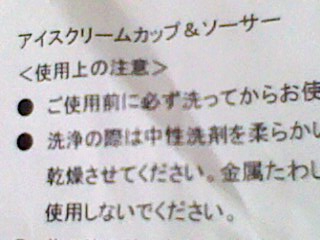 アイスクリームカップ＆ソーサー
＜使用上の注意＞
● ご使用前に必ず洗ってからお使
● 洗浄の際は中性洗剤を柔らかい
乾燥させてください。金属たわし
使用しないでください。